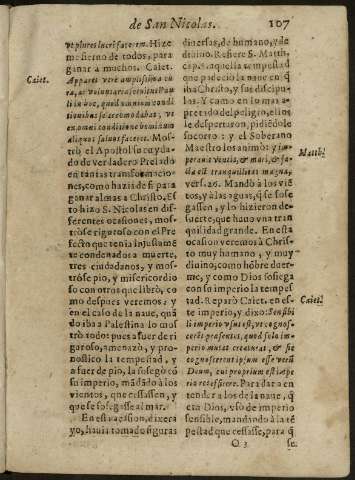 de San Nicolas. 107
vt plures lucrifacerem. Hize
me sieruo de todos, para
ganar a muchos. Caiet.
Caiet.
Apparet vere amplissima cu
ra, ac voluntaria seruitus Pau
li in hoc, quod omnium condi
tionibus se accomodabat; vt
ex omni conditione hominum
aliquos saluos faceret. Mos-
trò el Apostol su cuyda-
do de verdadero Prelado
en tantas transformacio-
nes, como hazia de si para
ganar almas a Christo. Es
to hizo S. Nicolas en dif-
ferentes ocasiones, mos-
trose riguroso con el Pre
fecto que tenia injustame
te condenados a muerte,
tres ciudadanos, y mos-
tròse pio, y misericordio
so con otros que librò, co
mo despues veremos: y
en el caso de la naue, quã
do iba a Palestina lo mos
trò todo: pues a fuer de ri
garoso, amenazò, y pro-
nostico la tempestad, y
a fuer de pio, la sosegò cõ
su imperio, mãdado a los
vientos, que cessassen, y
que se sosegasse al mar.
En esta ocasion, dixera
yo, hauia tomado figuras
diuersas, de humano, y de
diuino. Refiere S. Matth.
cap. 8. aquella tempestad
que padecio la naue en q̃
iba Christo, y sus discipu-
los. Y como en lo mas a-
pretado del peligro, ellos
le despertaron, pidiẽdole
socorro: y el Soberano
Maestro los animò: y im-
perauit ventis, & mari, & fa-
Matth.
cta est tranquillitas magna,
vers. 26. Mandò à los viẽ
tos, y à las aguas, q̃ se sose
gassen, y lo hizieron de-
suerte, que huuo vna tran
quilidad grande. En esta
ocasion veremos à Chris-
to muy humano, y muy
diuino; como hõbre duer-
me, y como Dios sosega
con su imperio la tempes
tad. Reparò Caiet. en es-
Caiet.
te imperio, y dixo: Sensibi
li imperio vsus est, vt cognos-
ceret præsentes, quod solo im-
perio mutat creaturas, & sic
cognoscerent ipsum esse verũ
Deum, cui proprium est impe
rio rem efficere. Para dar a en
tender a los de la naue, q̃
era Dios, vsò de imperio
sensible, mandando à la tẽ
pestad que cessasse, para q̃
O 3 se